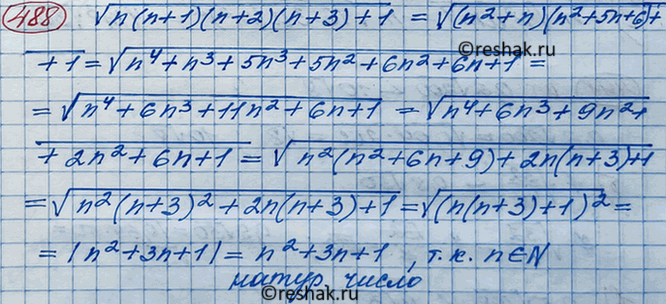 488 √n(n+1)(n+2)(n+3)+1 = √(n²+n)(n²+5n+6)+
+1 = √n⁴+n³+5n³+5n²+6n²+6n+1 =
©reshak.ru
= √n⁴+6n³+11n²+6n+1 = √n⁴+6n³+9n²+
+2n²+6n+1 = √n²(n²+6n+9)+2n(n+3)+1
= √n²(n+3)²+2n(n+3)+1 = √(n(n+3)+1)² =
= |n²+3n+1| = n²+3n+1, т.к. n∈N
натур. число
©reshak.ru